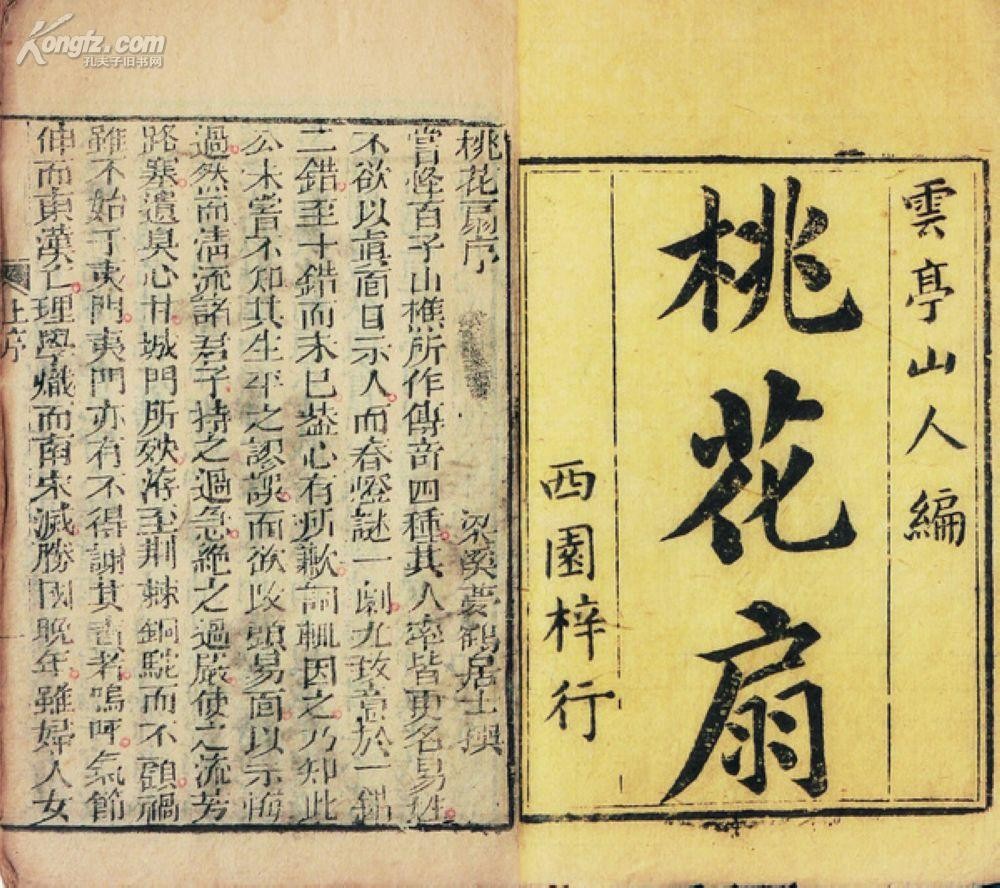 Kongfz.com
孔夫子旧书网
雲亭山人編
桃花扇
西園梓行
桃花扇序
梁溪夢鶴居士撰
嘗怪百子山樵所作傳奇四種其人率皆更名易姓
不欲以眞面目示人而春燈謎一劇尤致意於一錯
二錯至十錯而未已葢心有所歉詞輒因之乃知此
公未嘗不知其生平之謬誤而欲改頭易面以示悔
過然而淸流諸君子持之過急絶之過嚴使之流芳
路塞遺臭心甘城門所殃洊至荆棘銅駝而不顧禍
雖不始于夷門夷門亦有不得謝其責者嗚呼氣節
伸而東漢亡理學熾而南宋滅勝國晚年雖婦人女
上序